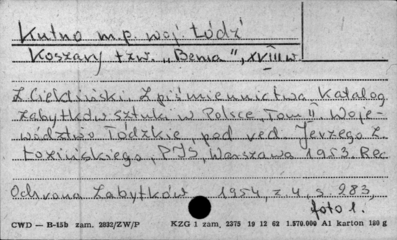 Kutno m.p. woj. Łódź
Koszary tzw. „Bema", XVIII w.
Z. Ciekliński Z piśmiennictwa Katalog
zabytków sztuki w Polsce, Tom II Woje-
wództwo Łódzkie, pod red. Jerzego Z.
Łozińskiego, PIS, Warszawa 1953. Rec.
Ochrona Zabytków 1954, z. 4, s. 283,
foto 1.
CWD — B-15b zam. 2032/ZW/P KZG 1 zam, 2375 19 12 62 1.570.000 A1 karton 180 g